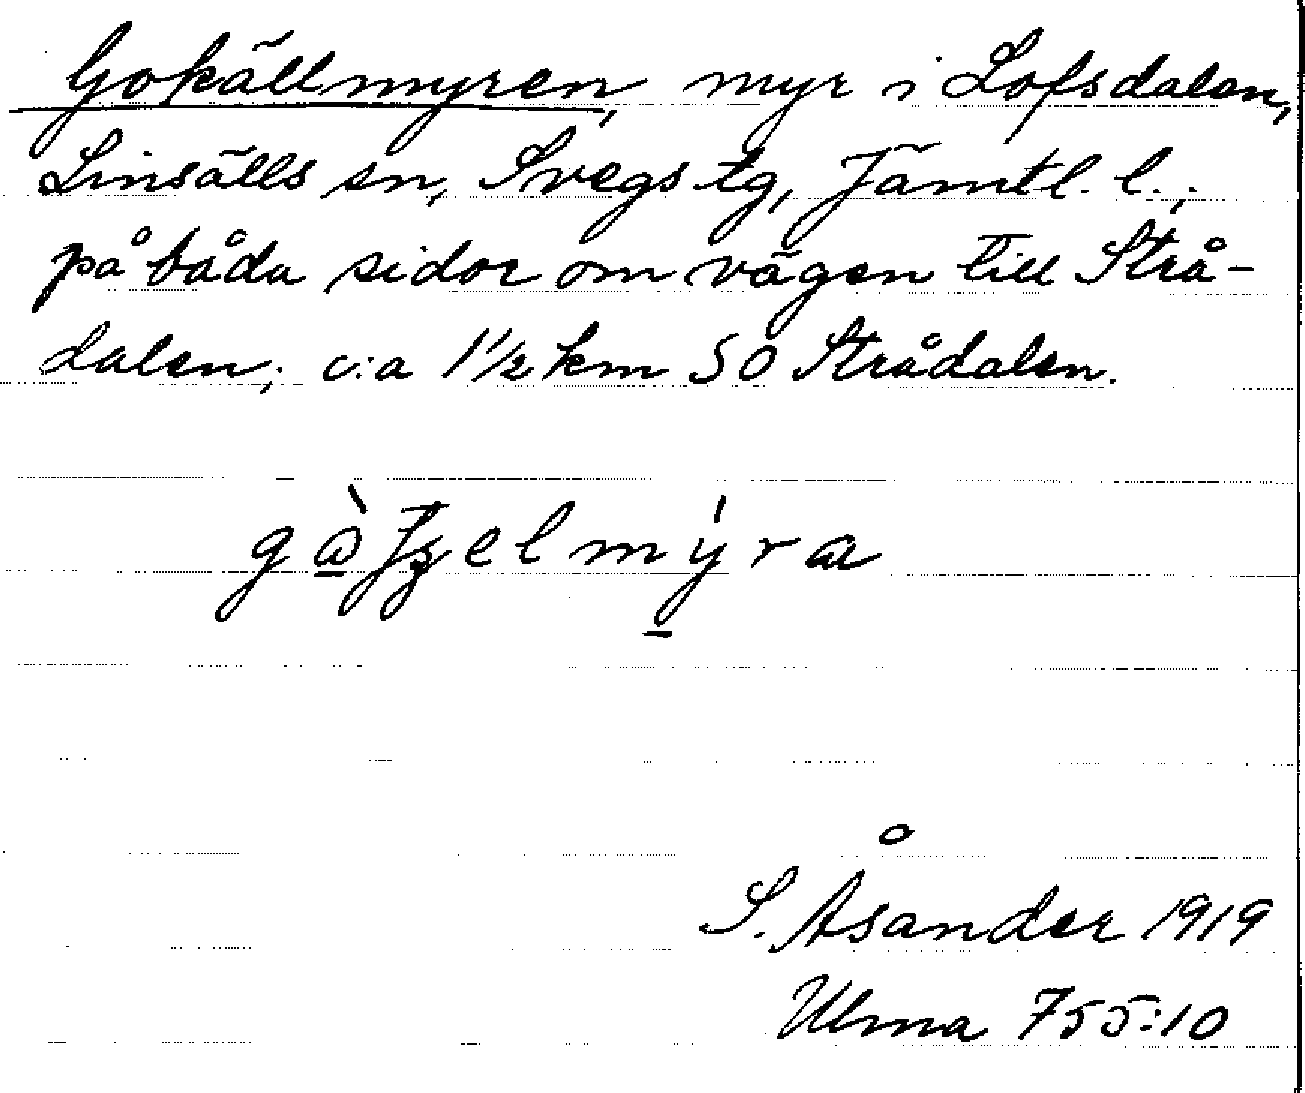 Gokällmyren, myr i Lofsdalen,
Linsälls sn, Svegs tg, Jämtl. l.,
på båda sidor om vägen till Strå-
dalen, c:a 1½ km SO Strådalen.
S. Åsander 1919
Ulma 755:10